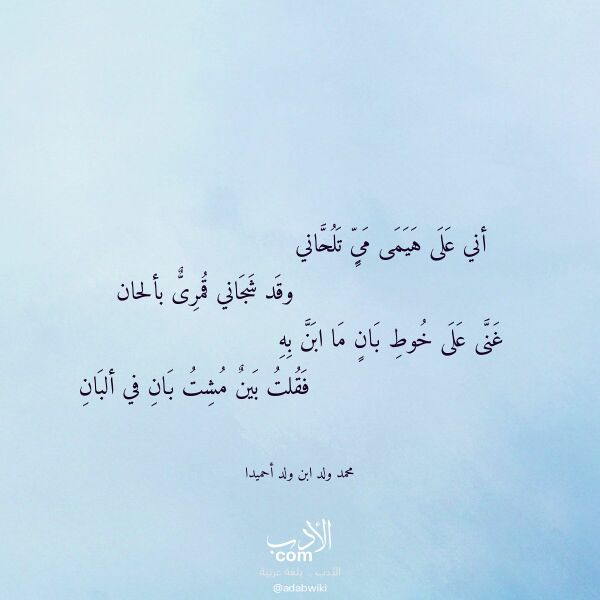 أني عَلَى هَيَمَى مَيٍّ تَلُحَّاني
وقَد شَجَاني قُمرِىٌّ بألحان
غَنَّى عَلَى خُوطِ بَانٍ مَا ابَنَّ بِهِ
فَقُلتُ بَينٌ مُشِتُ بَانِ في ألبَانِ
محمد ولد ابن ولد أحميدا
الأدب
com
الأدب .. بلغة عربية
@adabwiki